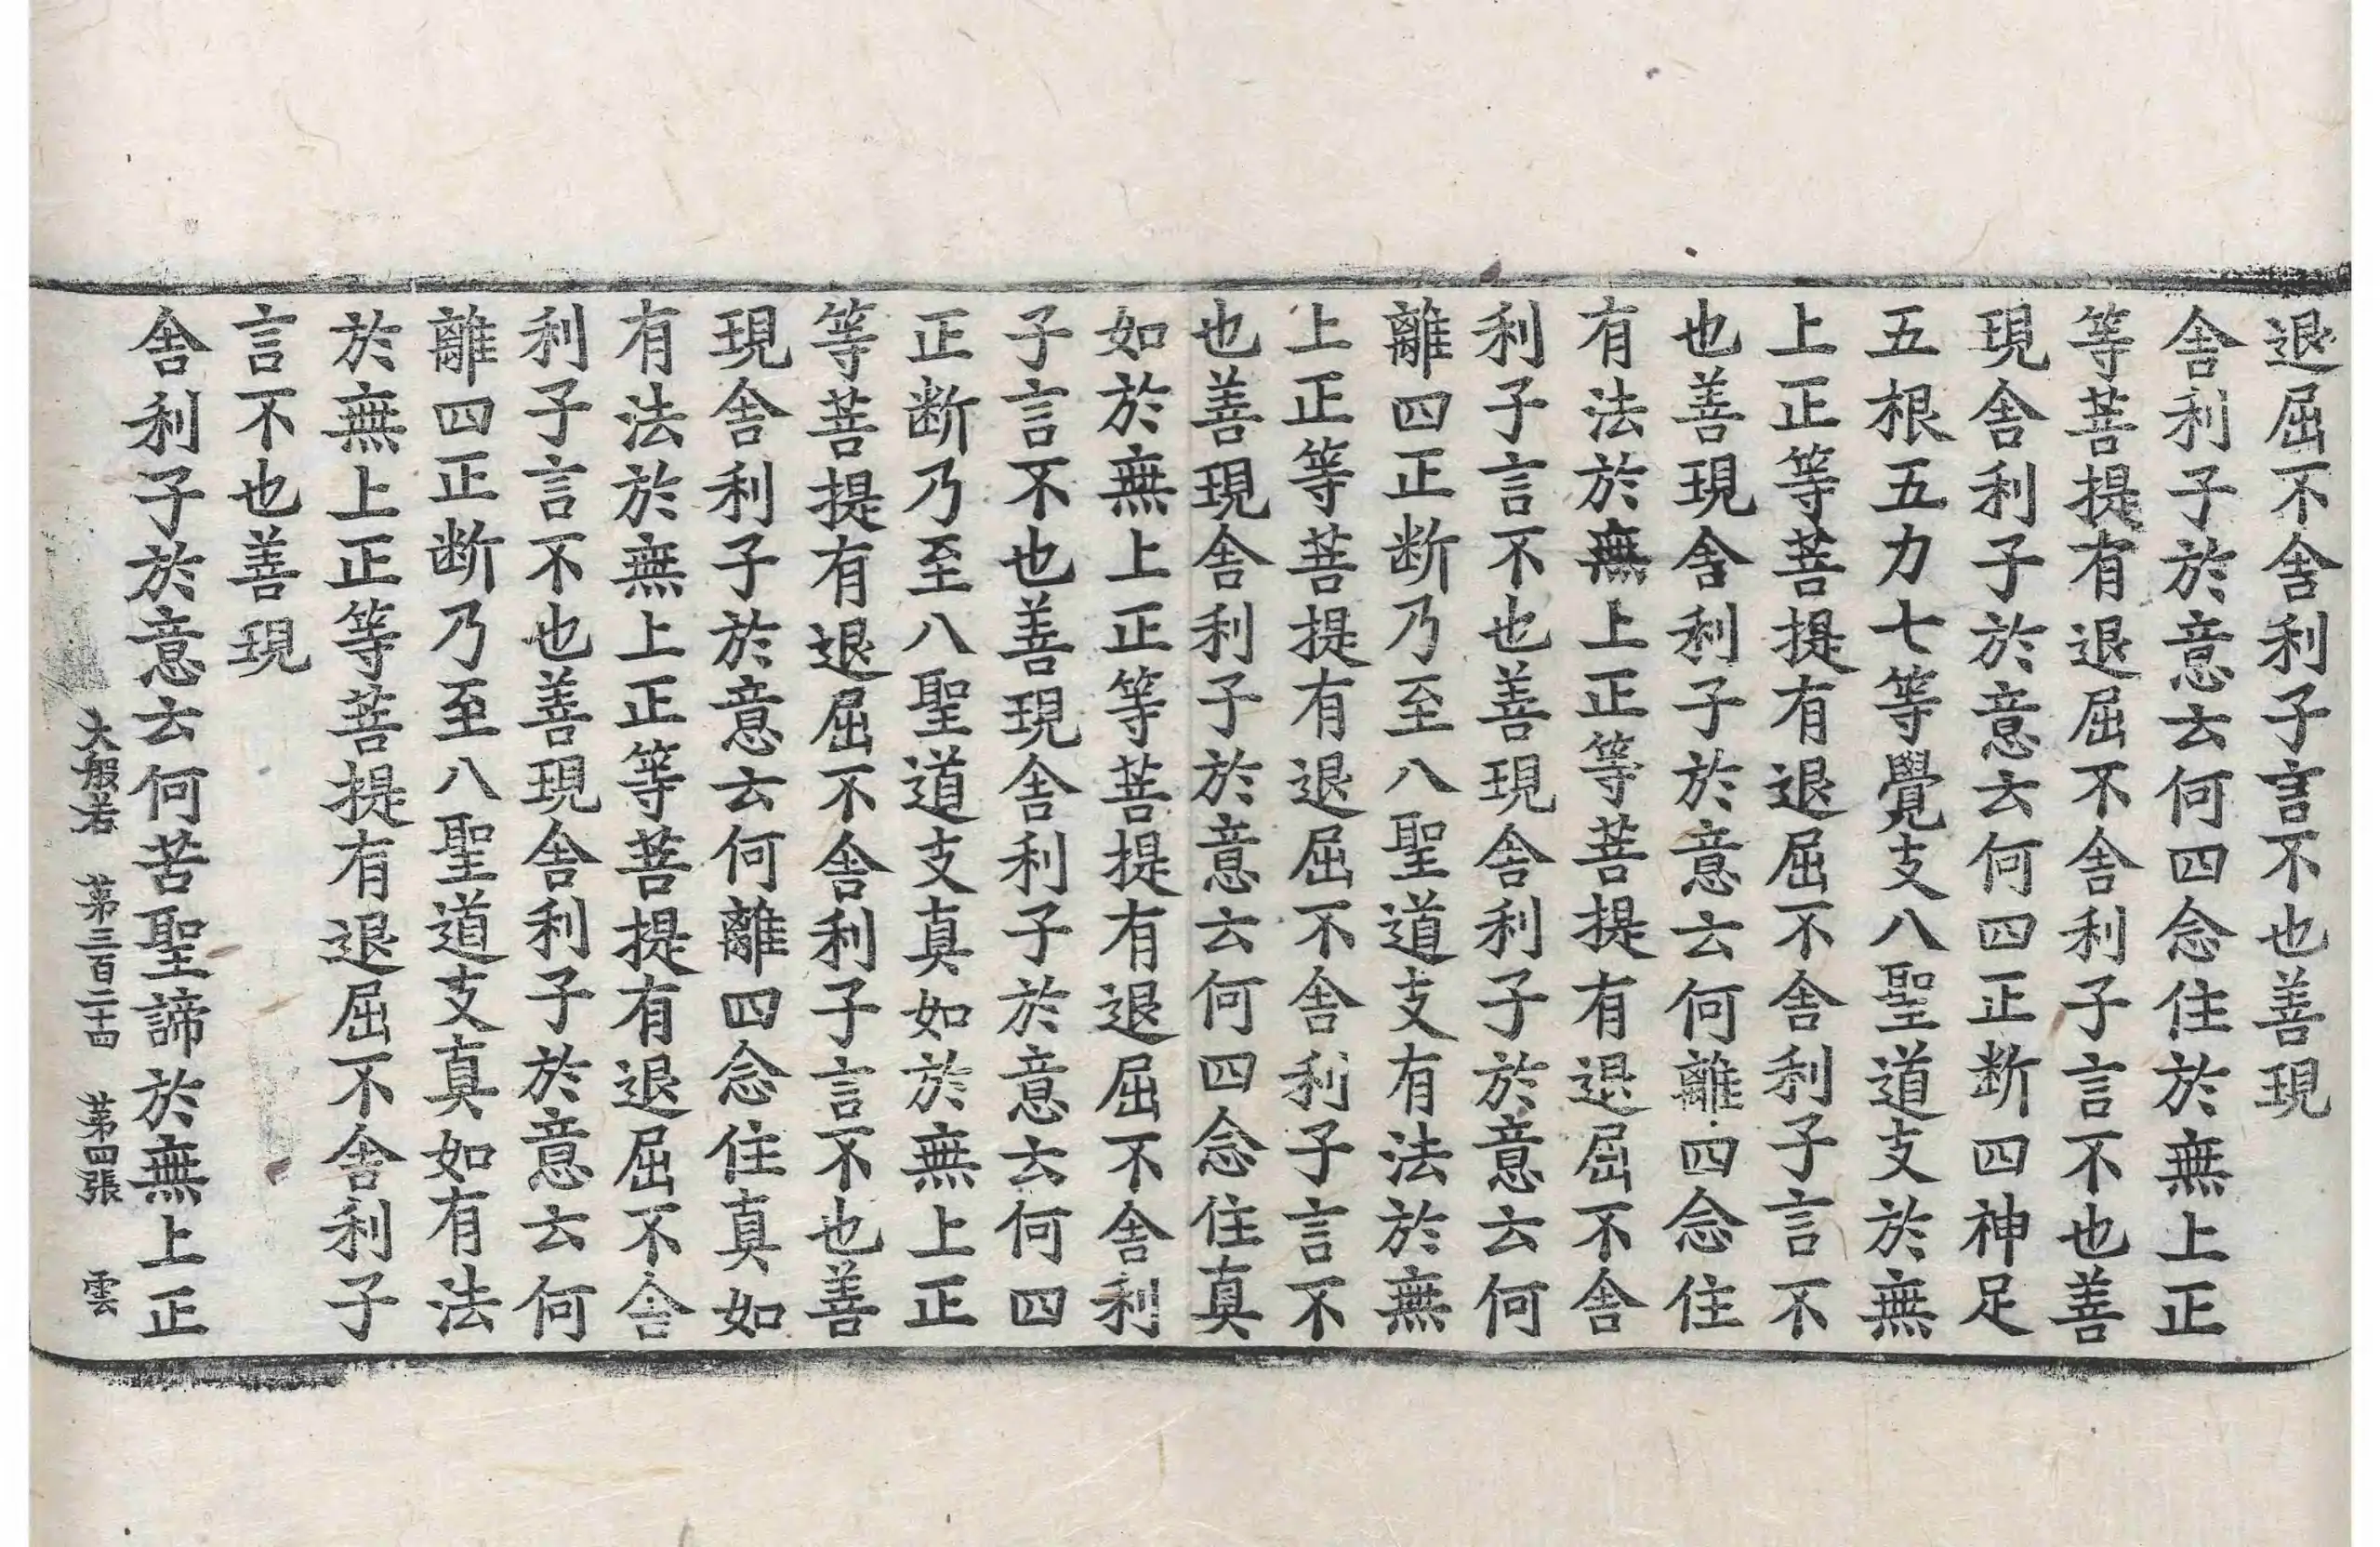 退屈不舍利子言不也善現
舍利子於意云何四念住於無上正
等菩提有退屈不舍利子言不也善
現舍利子於意云何四正断四神足
五根五力七等覺支八聖道支於無
上正等菩提有退屈不舍利子言不
也善現舍利子於意云何離四念住
有法於無上正等菩提有退屈不舍
利子言不也善現舍利子於意云何
離四正断乃至八聖道支有法於無
上正等菩提有退屈不舍利子言不
也善現舍利子於意云何四念住真
如於無上正等菩提有退屈不舍利
子言不也善現舍利子於意云何四
正断乃至八聖道支真如於無上正
等菩提有退屈不舍利子言不也善
現舍利子於意云何離四念住真如
有法於無上正等菩提有退屈不舍
利子言不也善現舍利子於意云何
離四正断乃至八聖道支真如有法
於無上正等菩提有退屈不舍利子
言不也善現
舍利子於意云何苦聖諦於無上正
大般若 第三百二十四 第四張 雲